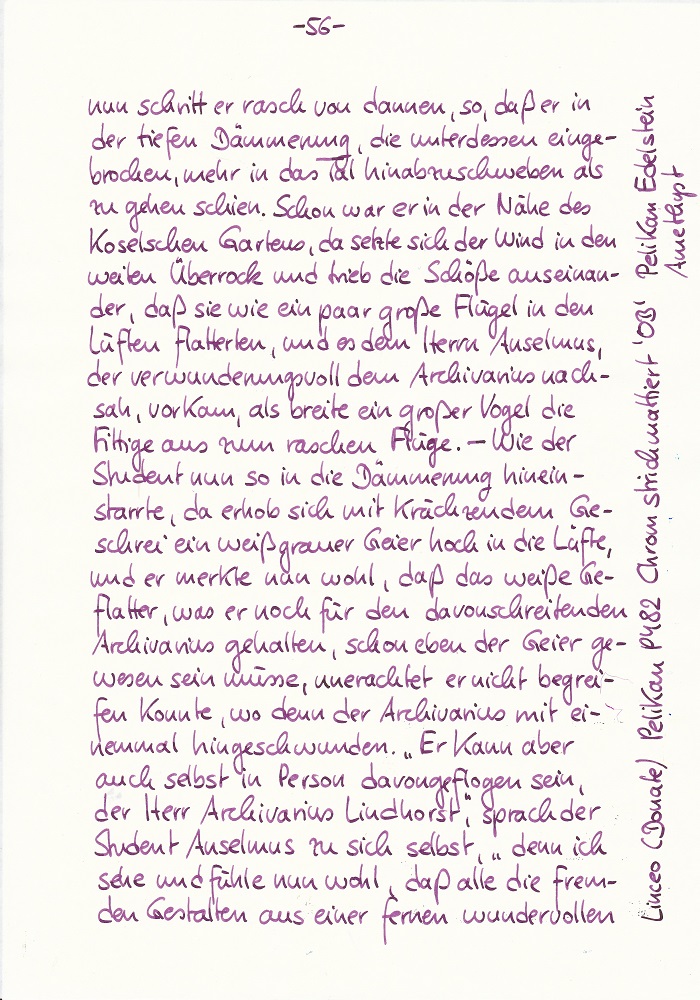 -56-
nun schritt er rasch von dannen, so, daß er in
der tiefen Dämmerung, die unterdessen einge-
brochen, mehr in das Tal hinabzuschweben als
zu gehen schien. Schon war er in der Nähe des
Koselschen Gartens, da setzte sich der Wind in den
weiten Überrock und trieb die Schöße auseinan-
der, daß sie wie ein paar große Flügel in den
Lüften flatterten, und es dem Herrn Anselmus,
der verwunderungsvoll dem Archivarius nach-
sah, vorkam, als breite ein großer Vogel die
Fittige aus zum raschen Fluge. — Wie der
Student nun so in die Dämmerung hinein-
starrte, da erhob sich mit krächzendem Ge-
schrei ein weißgrauer Geier hoch in die Lüfte,
und er merkte nun wohl, daß das weiße Ge-
flatter, was er noch für den davonschreitenden
Archivarius gehalten, schon eben der Geier ge-
wesen sein müsse, unerachtet er nicht begrei-
fen konnte, wo denn der Archivarius mit ei-
nemmal hingeschwunden. „Er kann aber
auch selbst in Person davongeflogen sein,
der Herr Archivarius Lindhorst“, sprach der
Student Anselmus zu sich selbst, „denn ich
sehe und fühle nun wohl, daß alle die frem-
den Gestalten aus einer fernen wundervollen
Linceo (Donate) Pelikan P482 Chrom strichmattiert 'OB' Pelikan Edelstein
Amethyst